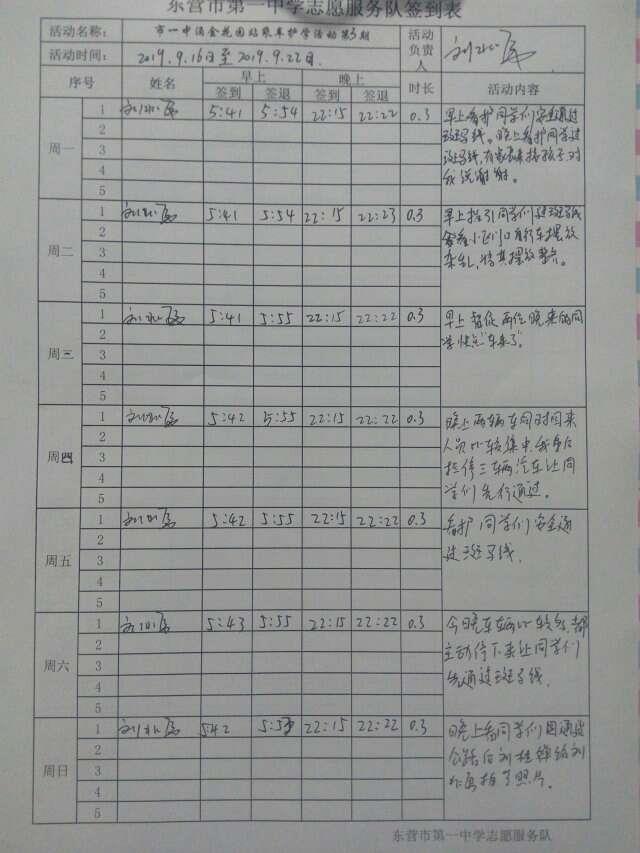 东营市第一中学志愿服务队签到表
活动名称： 市一中 金花园站乘车护学活动第3期 活动负责人
活动时间： 2019.9.16日至2019.9.22日.
序号 姓名 早上 晚上 时长 活动内容
签到 签退 签到 签退
周一 1 5:41 5:54 22:15 22:22 0.3 早上看护同学们安全通过
2 斑马线。晚上看护同学过
3 斑马线,有 孩子对
4 我说谢谢。
5
周二 1 5:41 5:54 22:15 22:23 0.3 早上指引同学们过斑马线
2 门口自行车摆放
3 杂乱,将其摆放整齐。
4
5
周三 1 5:41 5:55 22:15 22:22 0.3 早上督促两位晚来的同
2 学快点"车来了"。
3
4
5
周四 1 5:42 5:55 22:15 22:22 0.3 晚上两辆车同时回来
2 人员比较集中,我身后
3 拦停三辆汽车让同
4 学们先行通过。
5
周五 1 5:42 5:55 22:15 22:22 0.3 看护同学们安全通
2 过斑马线.
3
4
5
周六 1 5:43 5:55 22:15 22:22 0.3 今日晚车辆比较多,都
2 主动停下来让同学们
3 先通过斑马线.
4
5
周日 1 5:42 22:15 22:22 0.3 晚上看同学们
2 公路后刘
3 拍了照片。
4
5
东营市第一中学志愿服务队